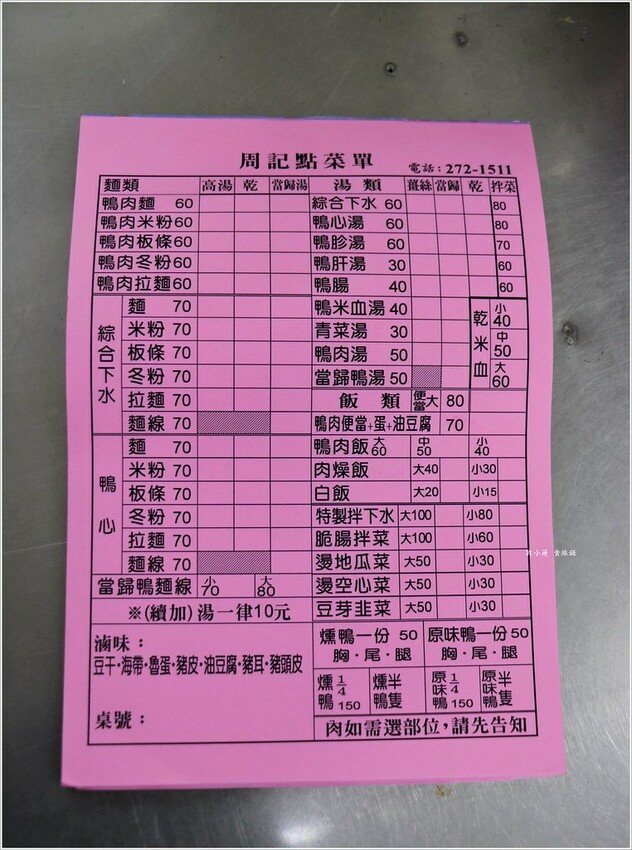 周記點菜單
電話：272-1511
麵類 高湯 乾 當歸湯 湯類 薑絲 當歸 乾 拌菜
鴨肉麵 60 綜合下水 60 80
鴨肉米粉 60 鴨心湯 60 80
鴨肉板條 60 鴨胗湯 60 70
鴨肉冬粉 60 鴨肝湯 30 60
鴨肉拉麵 60 鴨腸 40 60
綜合下水
麵 70 鴨米血湯 40 乾米血 小40
米粉 70 青菜湯 30 中50
板條 70 鴨肉湯 50
冬粉 70 當歸鴨湯 50 大60
拉麵 70 飯類 便當大 80
麵線 70 鴨肉便當+蛋+油豆腐 70
鴨心
麵 70 鴨肉飯 大60 中50 小40
米粉 70 肉燥飯 大40 小30
板條 70 白飯 大20 小15
冬粉 70 特製拌下水 大100 小80
拉麵 70 脆腸拌菜 大100 小60
麵線 70 燙地瓜菜 大50 小30
當歸鴨麵線 小70 大80 燙空心菜 大50 小30
※(續加)湯一律10元 豆芽韭菜 大50 小30
滷味：
豆干·海帶·魯蛋·豬皮·油豆腐·豬耳·豬頭皮
桌號：
燻鴨一份 50 原味鴨一份 50
胸·尾·腿 胸·尾·腿
燻鴨 1/4 150 燻鴨 半隻 原味鴨 1/4 150 原味鴨 半隻
肉如需選部位，請先告知